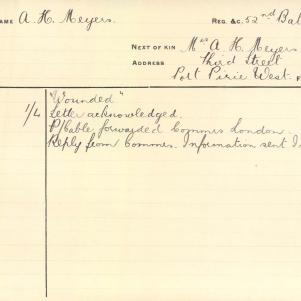 NAME A. H. Meyers.
REG. &C. 52nd Bat
NEXT OF KIN Mrs A. H. Meyers
ADDRESS Third Street
Port Pirie West.
"Wounded"
1/4 Letter acknowledged.
P/Cable forwarded Commrs London.
Reply from Commrs. Information sent